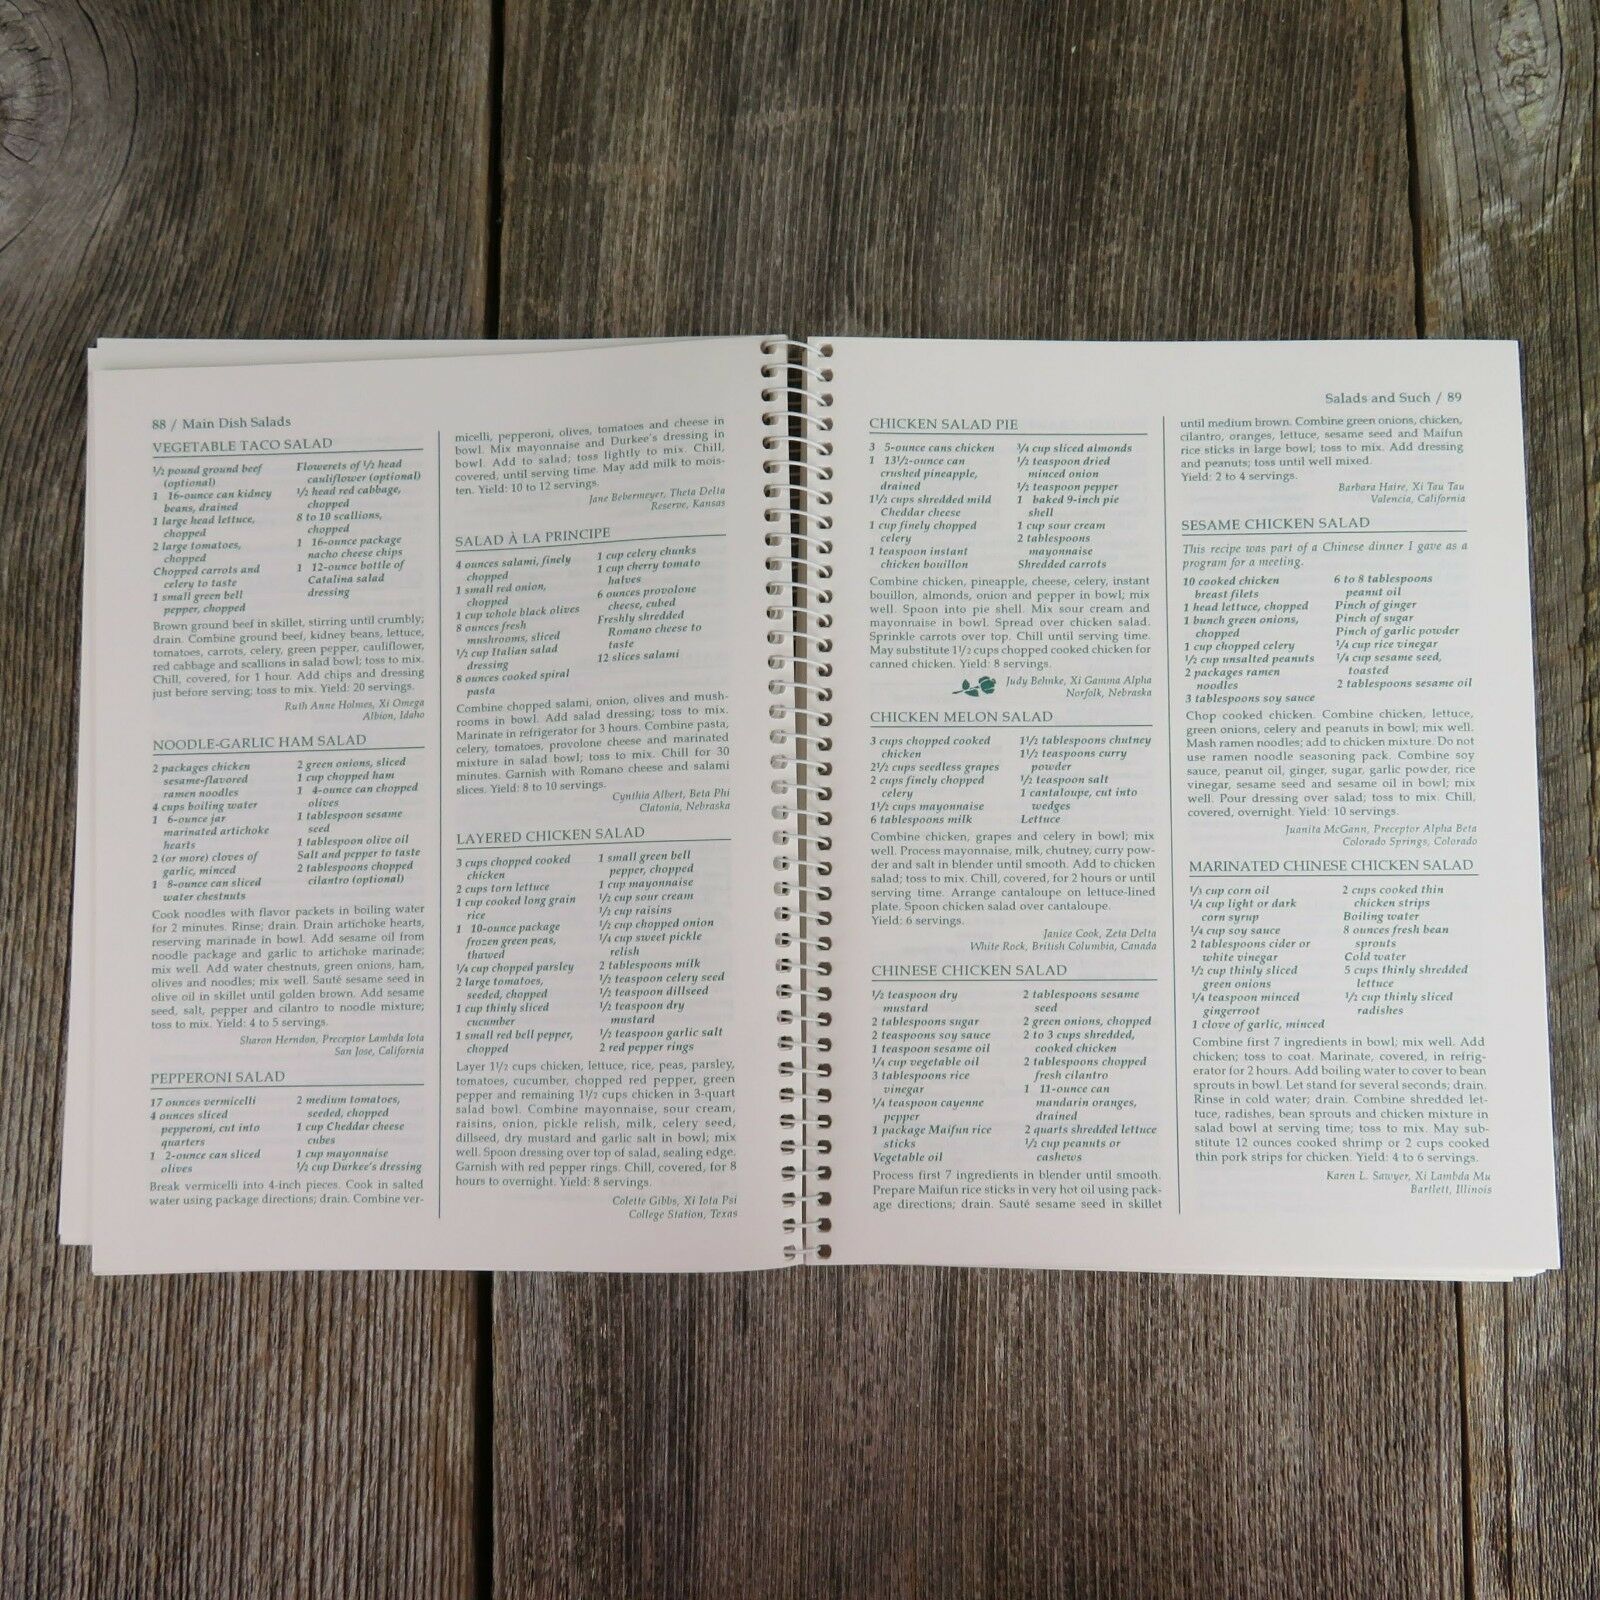 88 / Main Dish Salads
VEGETABLE TACO SALAD
1/2 pound ground beef
(optional)
1 16-ounce can kidney
beans, drained
1 large head lettuce,
chopped
2 large tomatoes,
chopped
Chopped carrots and
celery to taste
1 small green bell
pepper, chopped
Flowerets of 1/2 head
cauliflower (optional)
1/2 head red cabbage,
chopped
8 to 10 scallions,
chopped
1 16-ounce package
nacho cheese chips
1 12-ounce bottle of
Catalina salad
dressing
Brown ground beef in skillet, stirring until crumbly;
drain. Combine ground beef, kidney beans, lettuce,
tomatoes, carrots, celery, green pepper, cauliflower,
red cabbage and scallions in salad bowl; toss to mix.
Chill, covered, for 1 hour. Add chips and dressing
just before serving; toss to mix. Yield: 20 servings.
Ruth Anne Holmes, Xi Omega
Albion, Idaho
NOODLE-GARLIC HAM SALAD
2 packages chicken
sesame-flavored
ramen noodles
4 cups boiling water
1 6-ounce jar
marinated artichoke
hearts
2 (or more) cloves of
garlic, minced
1 8-ounce can sliced
water chestnuts
2 green onions, sliced
1 cup chopped ham
1 4-ounce can chopped
olives
1 tablespoon sesame
seed
1 tablespoon olive oil
Salt and pepper to taste
2 tablespoons chopped
cilantro (optional)
Cook noodles with flavor packets in boiling water
for 2 minutes. Rinse; drain. Drain artichoke hearts,
reserving marinade in bowl. Add sesame oil from
noodle package and garlic to artichoke marinade;
mix well. Add water chestnuts, green onions, ham,
olives and noodles; mix well. Sauté sesame seed in
olive oil in skillet until golden brown. Add sesame
seed, salt, pepper and cilantro to noodle mixture;
toss to mix. Yield: 4 to 5 servings.
Sharon Herndon, Preceptor Lambda Iota
San Jose, California
PEPPERONI SALAD
17 ounces vermicelli
4 ounces sliced
pepperoni, cut into
quarters
1 2-ounce can sliced
olives
2 medium tomatoes,
seeded, chopped
1 cup Cheddar cheese
cubes
1 cup mayonnaise
1/2 cup Durkee's dressing
Break vermicelli into 4-inch pieces. Cook in salted
water using package directions; drain. Combine ver-
micelli, pepperoni, olives, tomatoes and cheese in
bowl. Mix mayonnaise and Durkee's dressing in
bowl. Add to salad; toss lightly to mix. Chill,
covered, until serving time. May add milk to mois-
ten. Yield: 10 to 12 servings.
Jane Bebermeyer, Theta Delta
Reserve, Kansas
SALAD À LA PRINCIPE
4 ounces salami, finely
chopped
1 small red onion,
chopped
1 cup whole black olives
8 ounces fresh
mushrooms, sliced
1/2 cup Italian salad
dressing
8 ounces cooked spiral
pasta
1 cup celery chunks
1 cup cherry tomato
halves
6 ounces provolone
cheese, cubed
Freshly shredded
Romano cheese to
taste
12 slices salami
Combine chopped salami, onion, olives and mush-
rooms in bowl. Add salad dressing; toss to mix.
Marinate in refrigerator for 3 hours. Combine pasta,
celery, tomatoes, provolone cheese and marinated
mixture in salad bowl; toss to mix. Chill for 30
minutes. Garnish with Romano cheese and salami
slices. Yield: 8 to 10 servings.
Cynthia Albert, Beta Phi
Clatonia, Nebraska
LAYERED CHICKEN SALAD
3 cups chopped cooked
chicken
2 cups torn lettuce
1 cup cooked long grain
rice
1 10-ounce package
frozen green peas,
thawed
1/4 cup chopped parsley
2 large tomatoes,
seeded, chopped
1 cup thinly sliced
cucumber
1 small red bell pepper,
chopped
1 small green bell
pepper, chopped
1 cup mayonnaise
1/2 cup sour cream
1/2 cup raisins
1/2 cup chopped onion
1/4 cup sweet pickle
relish
2 tablespoons milk
1/2 teaspoon celery seed
1/2 teaspoon dillseed
1/2 teaspoon dry
mustard
1/2 teaspoon garlic salt
2 red pepper rings
Layer 1 1/2 cups chicken, lettuce, rice, peas, parsley,
tomatoes, cucumber, chopped red pepper, green
pepper and remaining 1 1/2 cups chicken in 3-quart
salad bowl. Combine mayonnaise, sour cream,
raisins, onion, pickle relish, milk, celery seed,
dillseed, dry mustard and garlic salt in bowl; mix
well. Spoon dressing over top of salad, sealing edge.
Garnish with red pepper rings. Chill, covered, for 8
hours to overnight. Yield: 8 servings.
Colette Gibbs, Xi Iota Psi
College Station, Texas
Salads and Such / 89
CHICKEN SALAD PIE
3 5-ounce cans chicken
1 13 1/2-ounce can
crushed pineapple,
drained
1 1/2 cups shredded mild
Cheddar cheese
1 cup finely chopped
celery
1 teaspoon instant
chicken bouillon
3/4 cup sliced almonds
1/2 teaspoon dried
minced onion
1/2 teaspoon pepper
1 baked 9-inch pie
shell
1 cup sour cream
2 tablespoons
mayonnaise
Shredded carrots
Combine chicken, pineapple, cheese, celery, instant
bouillon, almonds, onion and pepper in bowl; mix
well. Spoon into pie shell. Mix sour cream and
mayonnaise in bowl. Spread over chicken salad.
Sprinkle carrots over top. Chill until serving time.
May substitute 1 1/2 cups chopped cooked chicken for
canned chicken. Yield: 8 servings.
Judy Behnke, Xi Gamma Alpha
Norfolk, Nebraska
CHICKEN MELON SALAD
3 cups chopped cooked
chicken
2 1/2 cups seedless grapes
2 cups finely chopped
celery
1 1/2 cups mayonnaise
6 tablespoons milk
1 1/2 tablespoons chutney
1 1/2 teaspoons curry
powder
1/2 teaspoon salt
1 cantaloupe, cut into
wedges
Lettuce
Combine chicken, grapes and celery in bowl; mix
well. Process mayonnaise, milk, chutney, curry pow-
der and salt in blender until smooth. Add to chicken
salad; toss to mix. Chill, covered, for 2 hours or until
serving time. Arrange cantaloupe on lettuce-lined
plate. Spoon chicken salad over cantaloupe.
Yield: 6 servings.
Janice Cook, Zeta Delta
White Rock, British Columbia, Canada
CHINESE CHICKEN SALAD
1/2 teaspoon dry
mustard
2 tablespoons sugar
2 teaspoons soy sauce
1 teaspoon sesame oil
1/4 cup vegetable oil
3 tablespoons rice
vinegar
1/4 teaspoon cayenne
pepper
1 package Maifun rice
sticks
Vegetable oil
2 tablespoons sesame
seed
2 green onions, chopped
2 to 3 cups shredded,
cooked chicken
2 tablespoons chopped
fresh cilantro
1 11-ounce can
mandarin oranges,
drained
2 quarts shredded lettuce
1/2 cup peanuts or
cashews
Process first 7 ingredients in blender until smooth.
Prepare Maifun rice sticks in very hot oil using pack-
age directions; drain. Sauté sesame seed in skillet
until medium brown. Combine green onions, chicken,
cilantro, oranges, lettuce, sesame seed and Maifun
rice sticks in large bowl; toss to mix. Add dressing
and peanuts; toss until well mixed.
Yield: 2 to 4 servings.
Barbara Haire, Xi Tau Tau
Valencia, California
SESAME CHICKEN SALAD
This recipe was part of a Chinese dinner I gave as a
program for a meeting.
10 cooked chicken
breast filets
1 head lettuce, chopped
1 bunch green onions,
chopped
1 cup chopped celery
1/2 cup unsalted peanuts
2 packages ramen
noodles
3 tablespoons soy sauce
6 to 8 tablespoons
peanut oil
Pinch of ginger
Pinch of sugar
Pinch of garlic powder
1/4 cup rice vinegar
1/4 cup sesame seed,
toasted
2 tablespoons sesame oil
Chop cooked chicken. Combine chicken, lettuce,
green onions, celery and peanuts in bowl; mix well.
Mash ramen noodles; add to chicken mixture. Do not
use ramen noodle seasoning pack. Combine soy
sauce, peanut oil, ginger, sugar, garlic powder, rice
vinegar, sesame seed and sesame oil in bowl; mix
well. Pour dressing over salad; toss to mix. Chill,
covered, overnight. Yield: 10 servings.
Juanita McGann, Preceptor Alpha Beta
Colorado Springs, Colorado
MARINATED CHINESE CHICKEN SALAD
1/3 cup corn oil
1/4 cup light or dark
corn syrup
1/4 cup soy sauce
2 tablespoons cider or
white vinegar
1/2 cup thinly sliced
green onions
1/4 teaspoon minced
gingerroot
1 clove of garlic, minced
2 cups cooked thin
chicken strips
Boiling water
8 ounces fresh bean
sprouts
Cold water
5 cups thinly shredded
lettuce
1/2 cup thinly sliced
radishes
Combine first 7 ingredients in bowl; mix well. Add
chicken; toss to coat. Marinate, covered, in refrig-
erator for 2 hours. Add boiling water to cover to bean
sprouts in bowl. Let stand for several seconds; drain.
Rinse in cold water; drain. Combine shredded let-
tuce, radishes, bean sprouts and chicken mixture in
salad bowl at serving time; toss to mix. May sub-
stitute 12 ounces cooked shrimp or 2 cups cooked
thin pork strips for chicken. Yield: 4 to 6 servings.
Karen L. Sawyer, Xi Lambda Mu
Bartlett, Illinois